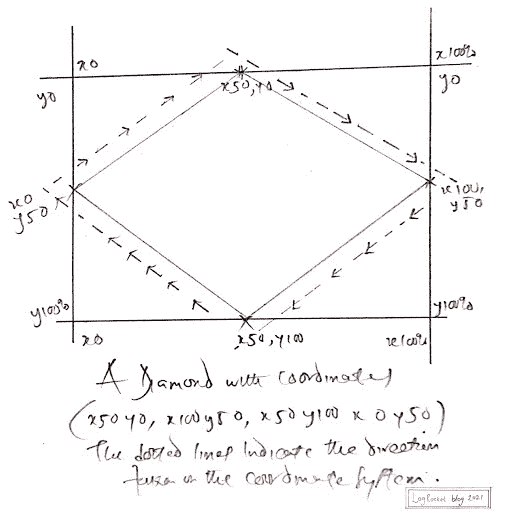 x0
x100%
y0
y0
x50, y0
x0
y50
x100,
y50
y100%
y100%
x0
x50, y100
x100%
A Diamond with Coordinates
(x50 y0, x100 y50, x50 y100 x0 y50)
The dotted lines Indicate the direction
in the coordinate System.
LogRocket blog 2021